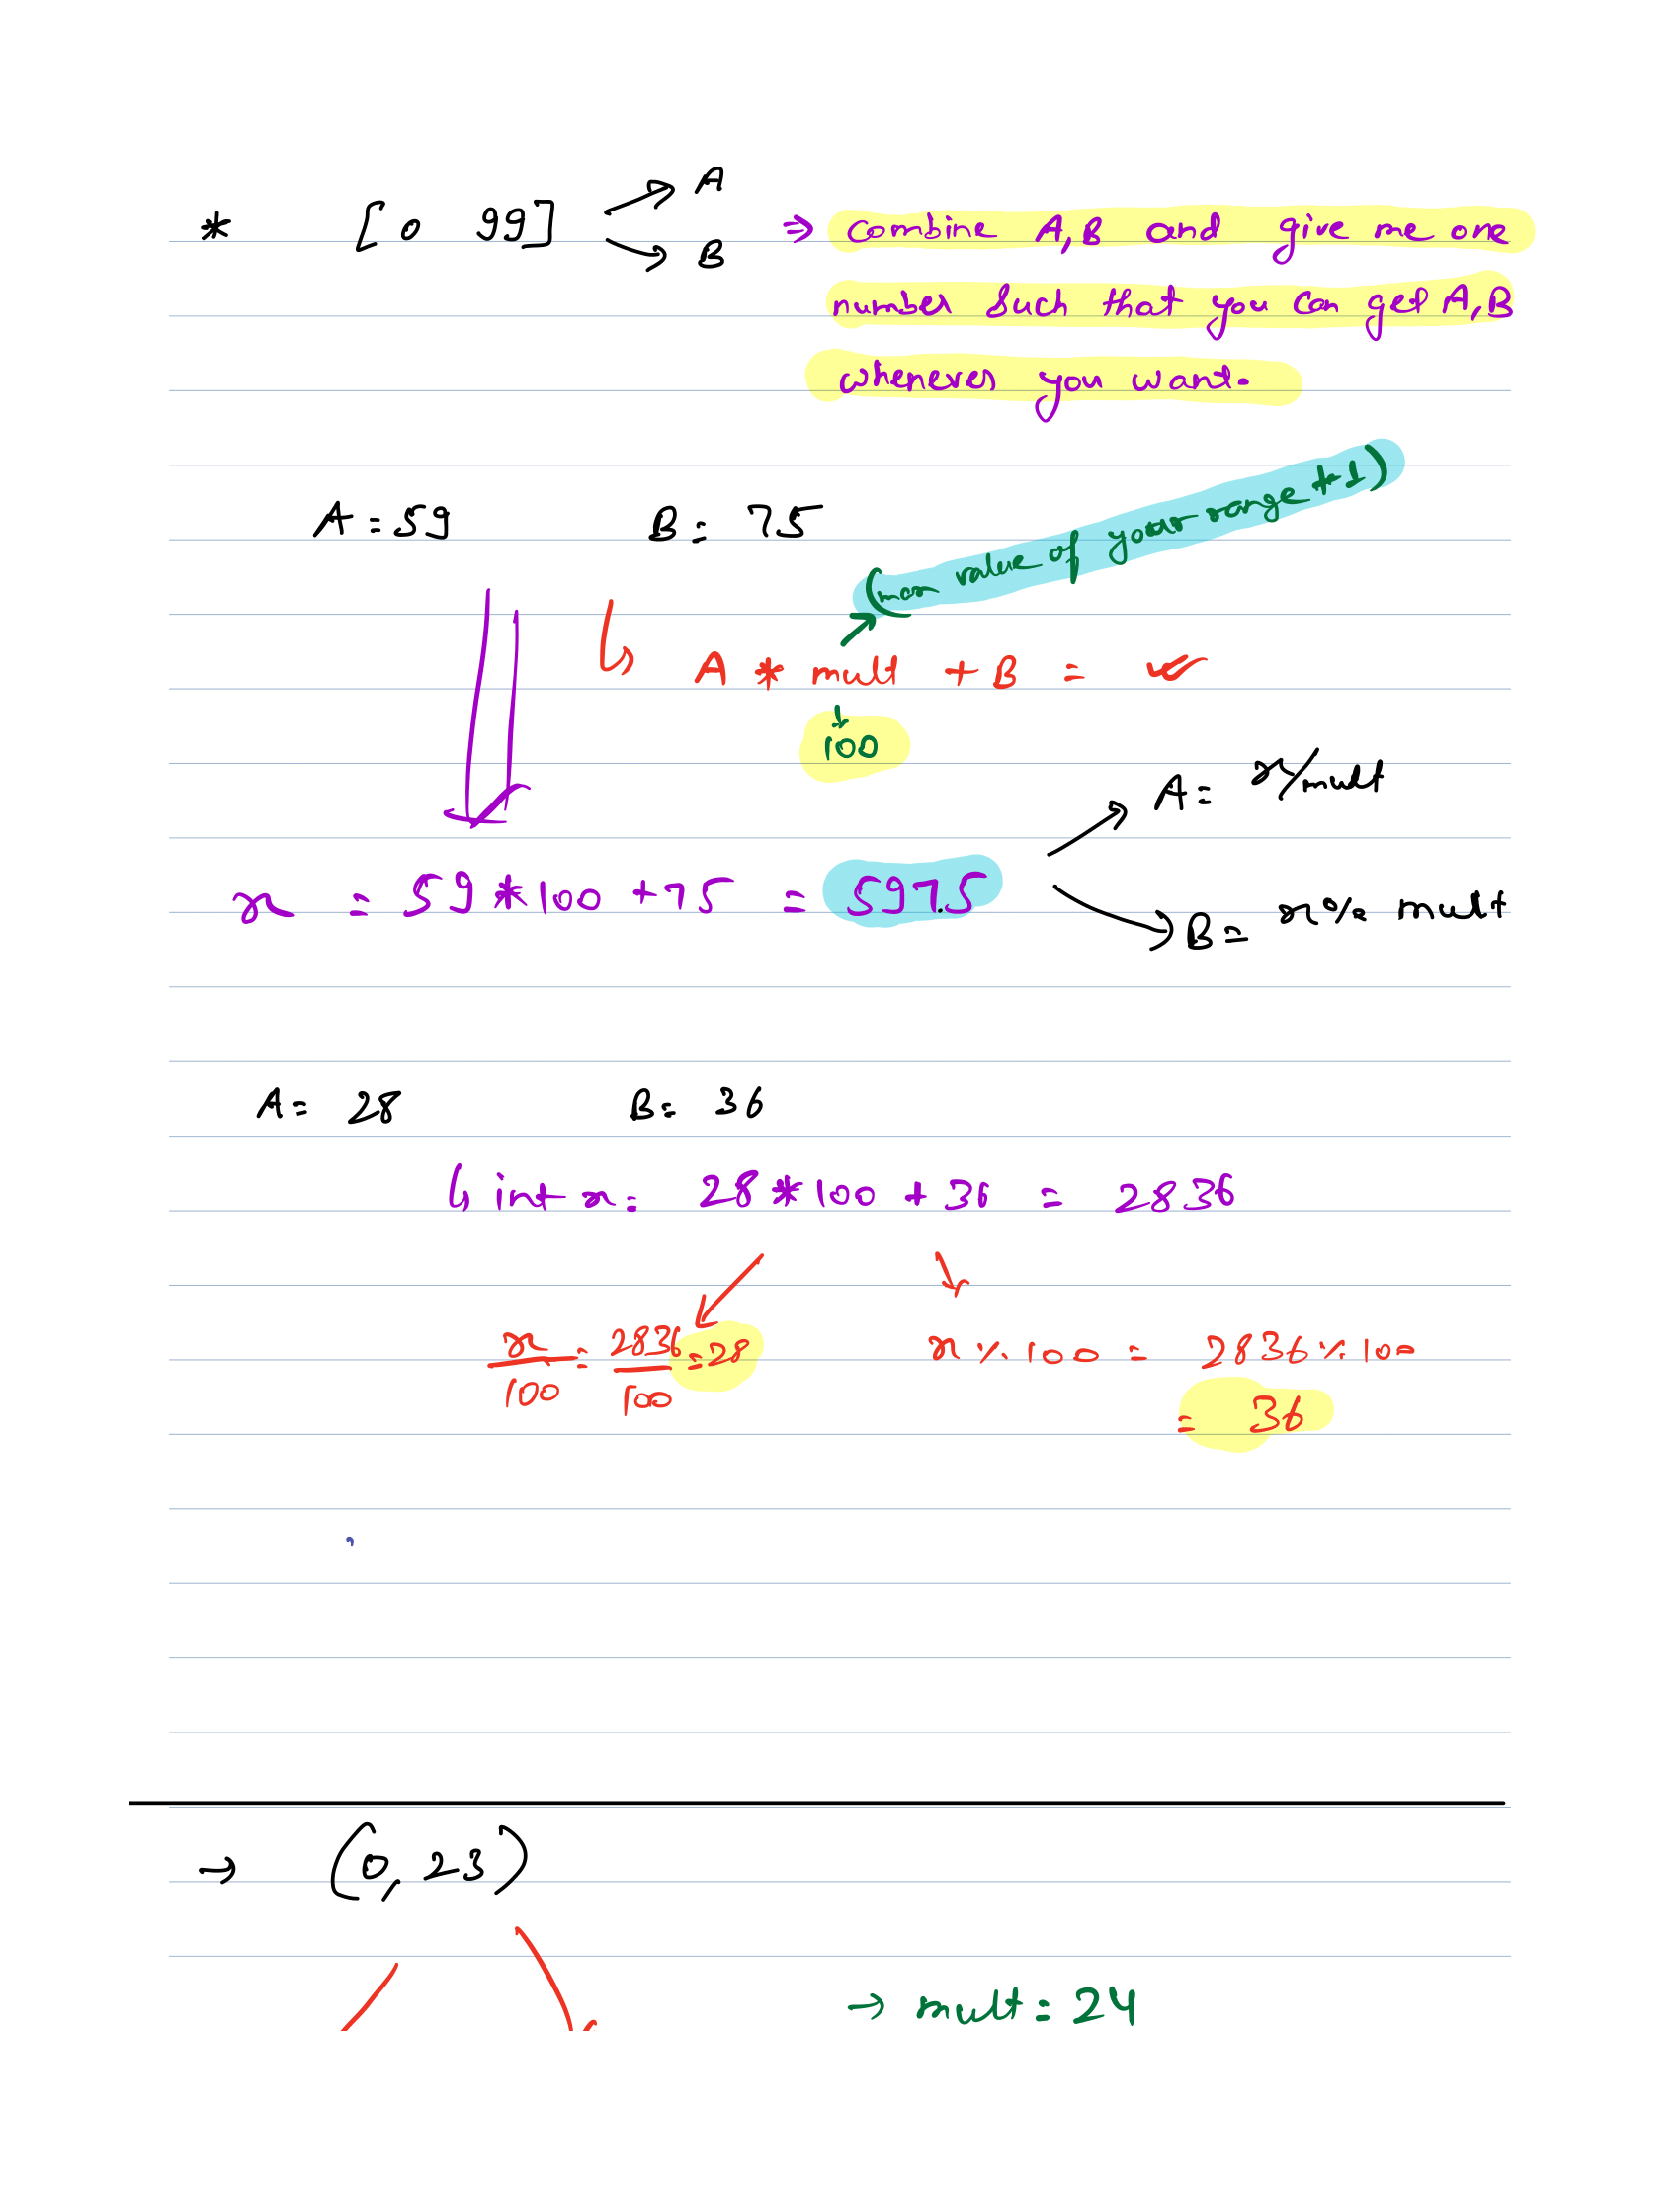 * [0 99] → A
→ B
⇒ combine A,B and give me one
number such that you can get A,B
whenever you want.
A = 59 B = 75
(max value of your range + 1)
↳ A * mult + B = ✓
↓
100
x = 59 * 100 + 75 = 5975
→ A = x/mult
→ B = x % mult
A = 28 B = 36
↳ int x = 28 * 100 + 36 = 2836
x/100 = 2836/100 = 28 x % 100 = 2836 % 100
= 36
→ (0, 23)
→ mult = 24